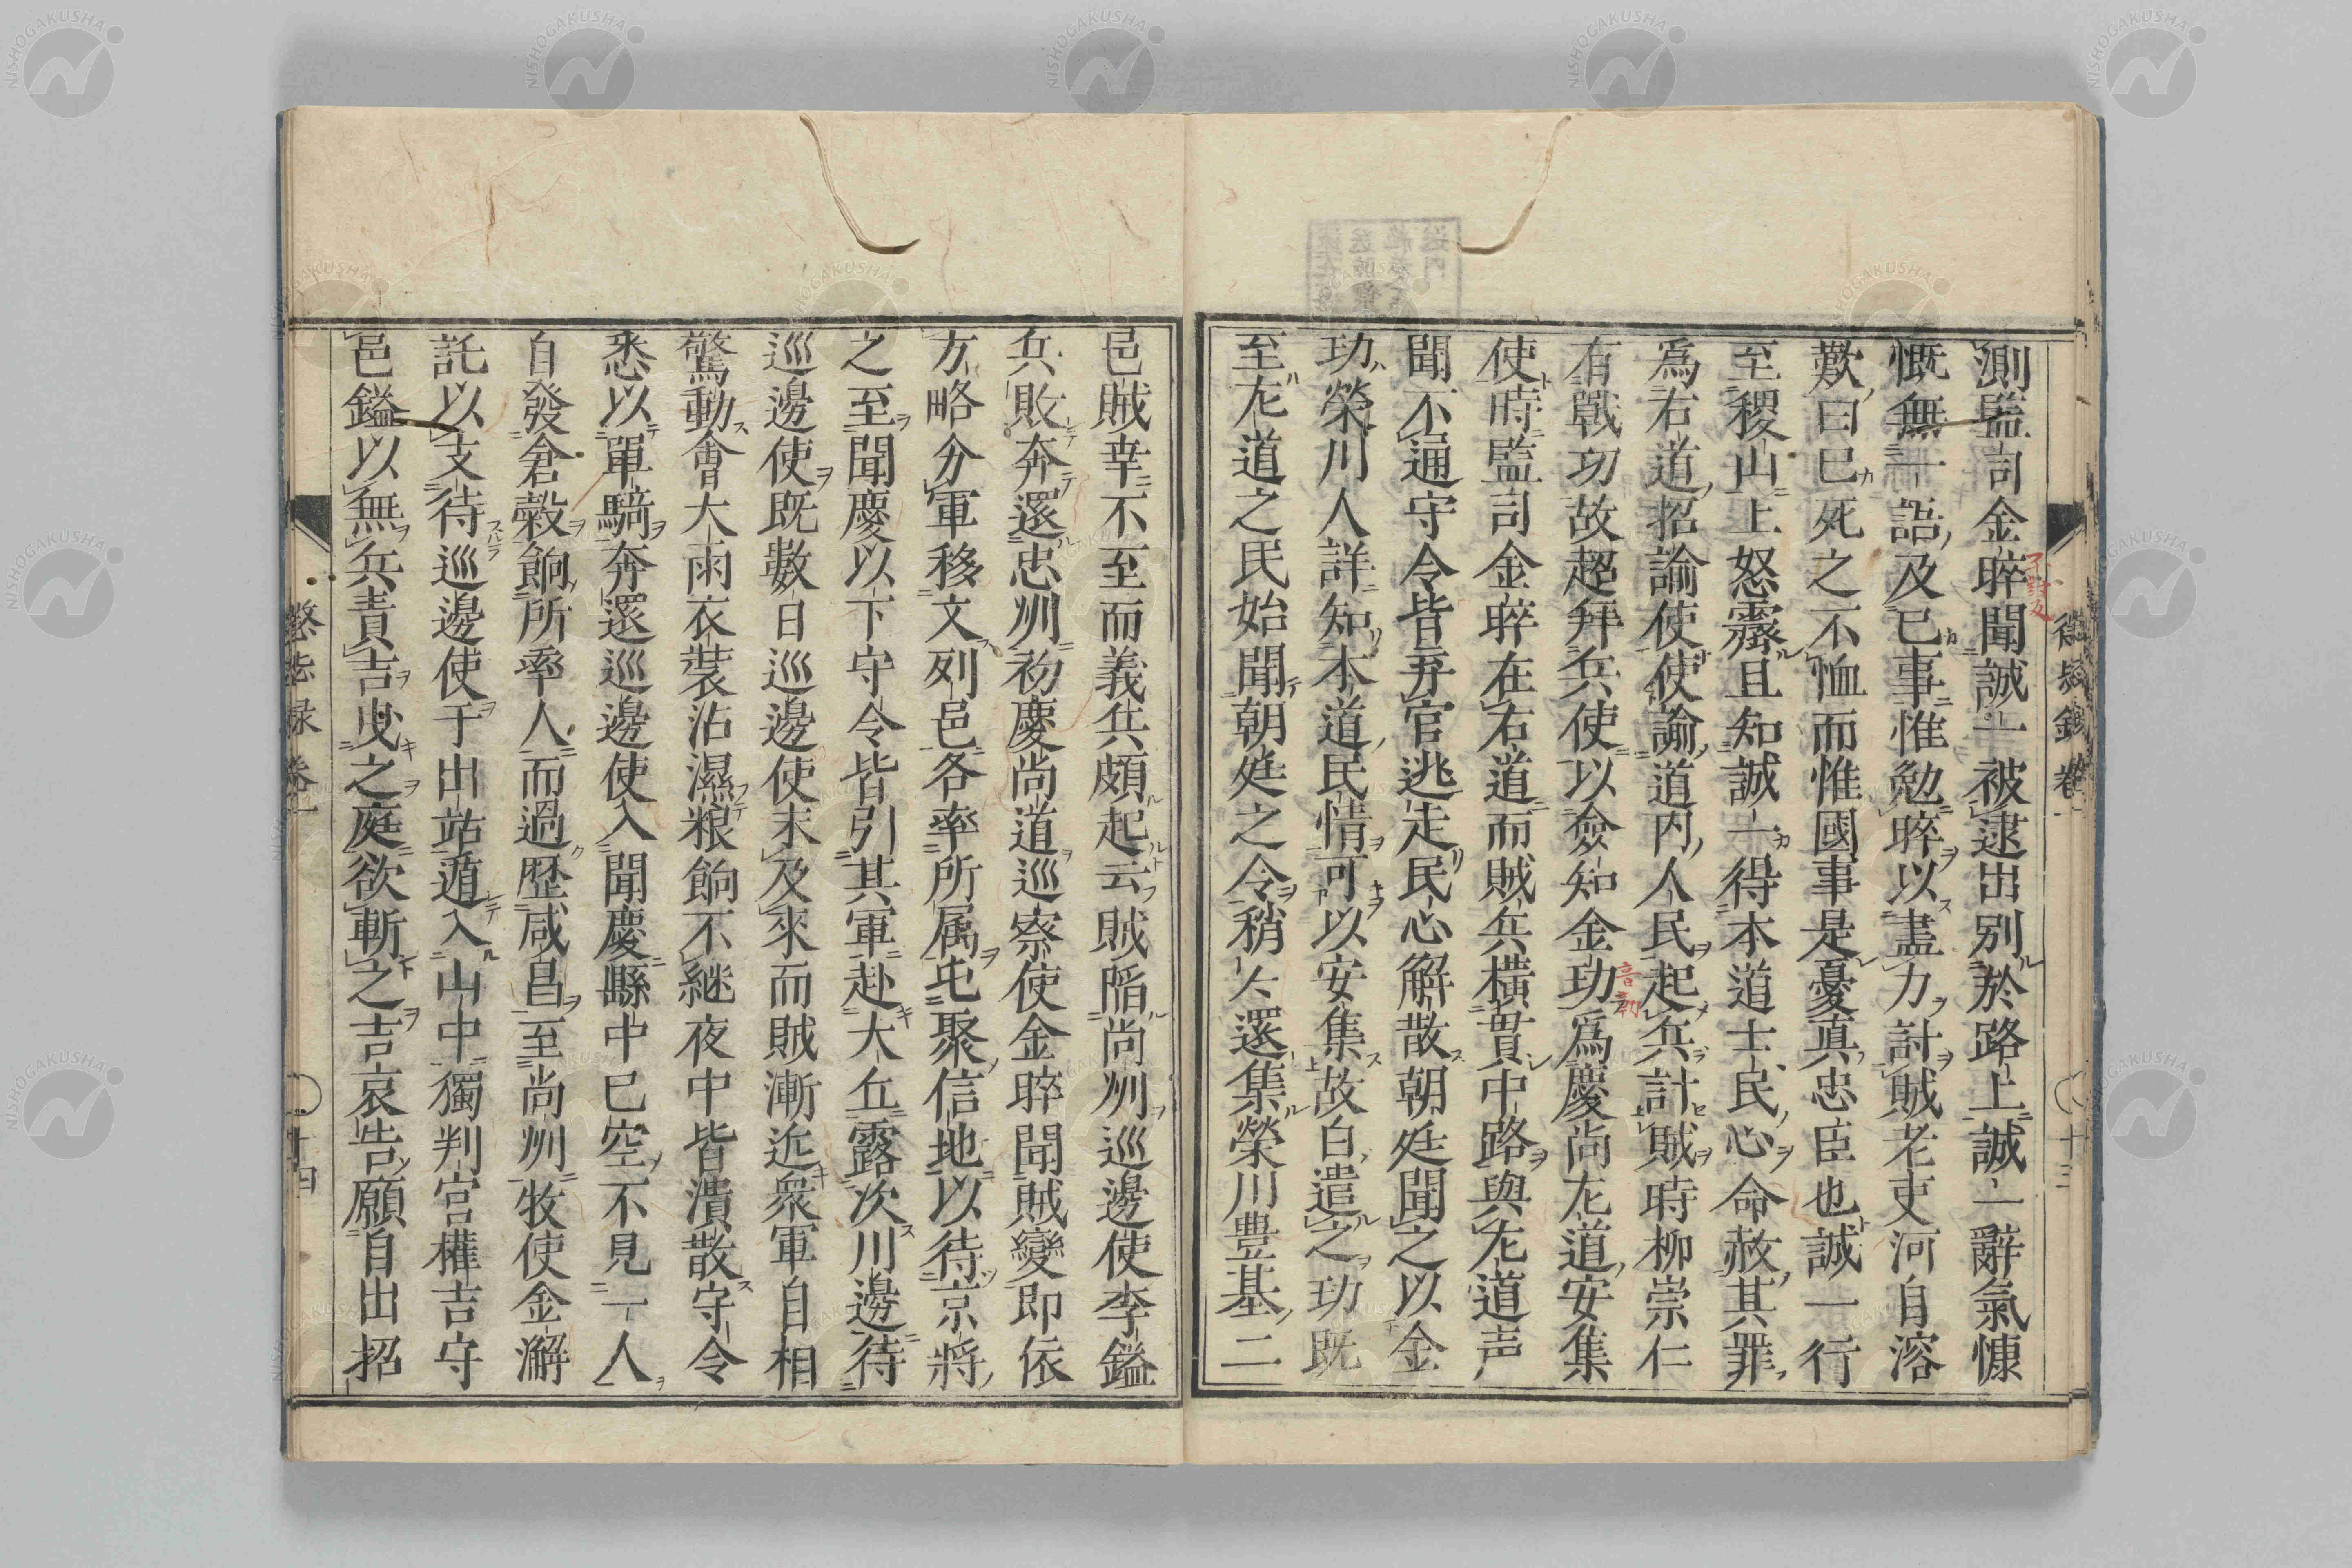 測監司金晬聞誠一被逮出別於路上誠一辭氣慷
慨無一語及已事惟勉晬以盡力討賊老吏河自溶
歎曰已死之不恤而惟國事是憂真忠臣也誠一行
至稷山上怒霽且知誠一得本道士民心命赦其罪
爲右道招諭使使諭道内人民起兵討賊時柳崇仁
有戰功故超拜兵使以僉知金功爲慶尚左道安集
使時監司金晬在右道而賊兵橫貫中路與左道声
聞不通守令皆弃官逃走民心解散朝廷聞之以金
功榮川人詳知本道民情可以安集故白遣之功既
至左道之民始聞朝廷之令稍々還集榮川豊基二
邑賊幸不至而義兵頗起云賊陷尚州巡邊使李鎰
兵敗奔還忠州初慶尚道巡察使金晬聞賊變即依
方略分軍移文列邑各率所属屯聚信地以待京將
之至聞慶以下守令皆引其軍赴大丘露次川邊待
巡邊使既數日巡邊使未及來而賊漸近衆軍自相
驚動會大雨衣裝沾濕粮餉不継夜中皆潰散守令
悉以單騎奔還巡邊使入聞慶縣中已空不見一人
自發倉穀餉所率人而過歴咸昌至尚州牧使金澥
託以支待巡邊使于出站遁入山中獨判官權吉守
邑鎰以無兵責吉曳之庭欲斬之吉哀告願自出招
懲毖録 卷一
十三
懲毖録 卷一
十四